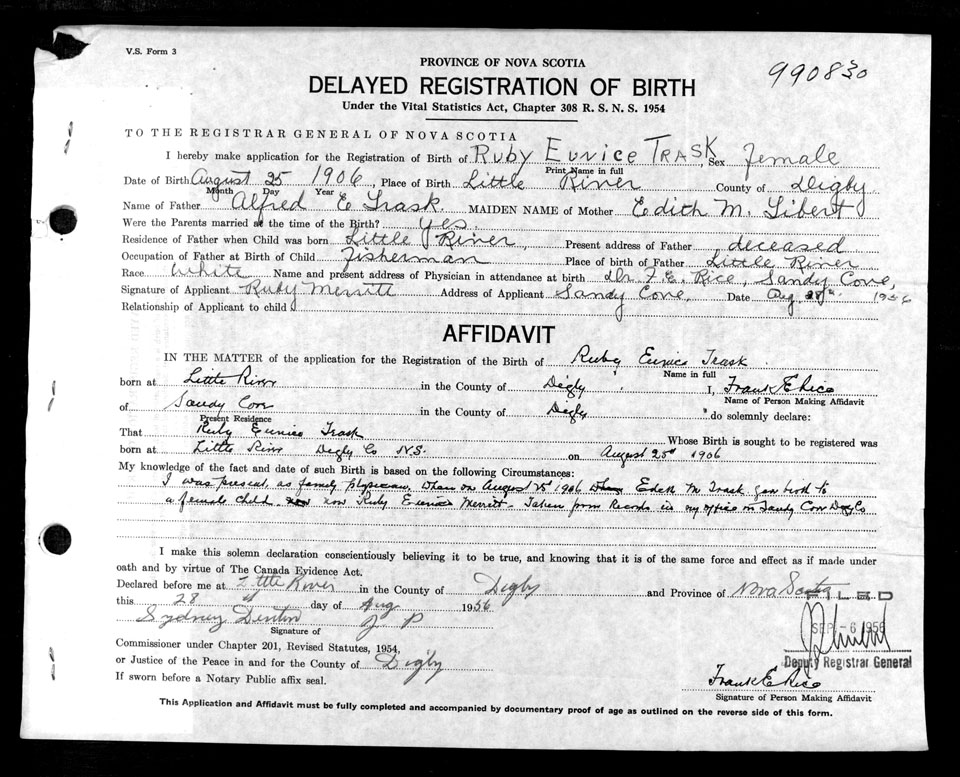 V.S. Form 3
PROVINCE OF NOVA SCOTIA
990830
DELAYED REGISTRATION OF BIRTH
Under the Vital Statistics Act, Chapter 308 R. S. N. S. 1954
TO THE REGISTRAR GENERAL OF NOVA SCOTIA
I hereby make application for the Registration of Birth of Ruby Eunice TRASK Sex female
Print Name in full
Date of Birth August 25 1906 Place of Birth Little River County of Digby
Month Day Year
Name of Father Alfred E Trask MAIDEN NAME of Mother Edith M.
Were the Parents married at the time of the Birth? yes.
Residence of Father when Child was born Little River, Present address of Father deceased
Occupation of Father at Birth of Child fisherman Place of birth of Father Little River
Race White Name and present address of Physician in attendance at birth Dr. F. E. Rice, Sandy Cove,
Signature of Applicant Ruby Merritt Address of Applicant Sandy Cove, Date Aug. 28th. 1956
Relationship of Applicant to child
AFFIDAVIT
IN THE MATTER of the application for the Registration of the Birth of Ruby Eunice Trask
Name in full
born at Little River in the County of Digby I, Frank E Rice
Name of Person Making Affidavit
of Sandy Cove in the County of Digby do solemnly declare:
Present Residence
That Ruby Eunice Trask Whose Birth is sought to be registered was
born at Little River Digby Co N.S. on August 25th 1906
My knowledge of the fact and date of such Birth is based on the following Circumstances:
I was present, as family physician, when on August 25 1906 Edith M Trask gave birth to
a female child now Ruby Eunice Merritt - Taken from Records in my office in Sandy Cove Digby Co
I make this solemn declaration conscientiously believing it to be true, and knowing that it is of the same force and effect as if made under
oath and by virtue of The Canada Evidence Act.
Declared before me at Little River in the County of Digby and Province of Nova Scotia
this 28 day of Aug 1956
FILED
Sydney Denton J P
SEP -6 1956
Signature of
Commissioner under Chapter 201, Revised Statutes, 1954,
Deputy Registrar General
or Justice of the Peace in and for the County of Digby
Frank E Rice
If sworn before a Notary Public affix seal.
Signature of Person Making Affidavit
This Application and Affidavit must be fully completed and accompanied by documentary proof of age as outlined on the reverse side of this form.